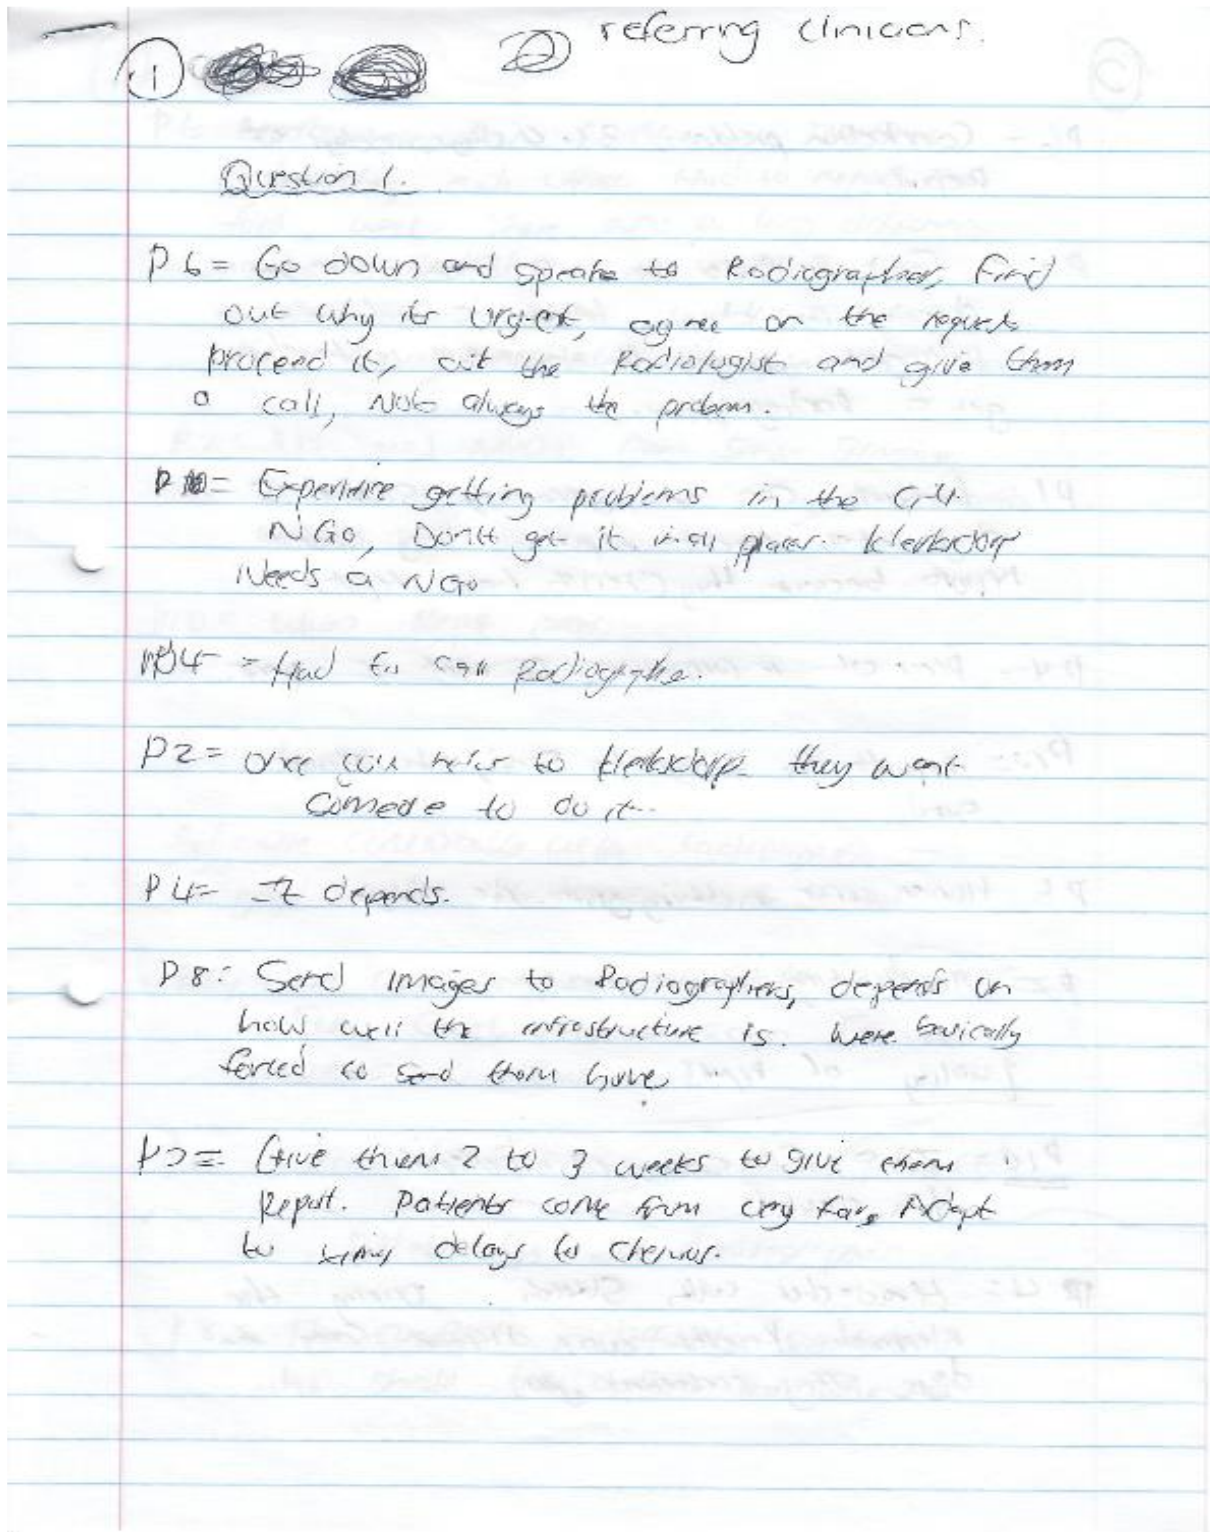 ① ② referring clinicians.
Question 1.
P6 = Go down and speake to Radiographer, Find
out why its urgent, agree on the request
proceed it, the Radiologist and give them
a call, Not always the problem.
= getting problems in the
NGO, Dont get it in all places. Klerksdorp
Needs a NGO
= Had to call Radiographe.
P2 = once you refer to Klerksdorp they want
to do it..
P4 = It depends.
P8: Send images to Radiographers, depends on
how well the infrastructure is. Were basically
forced to send them home
= Give them 2 to 3 weeks to give them
Report. Patients come from very far, Adapt
to delays to